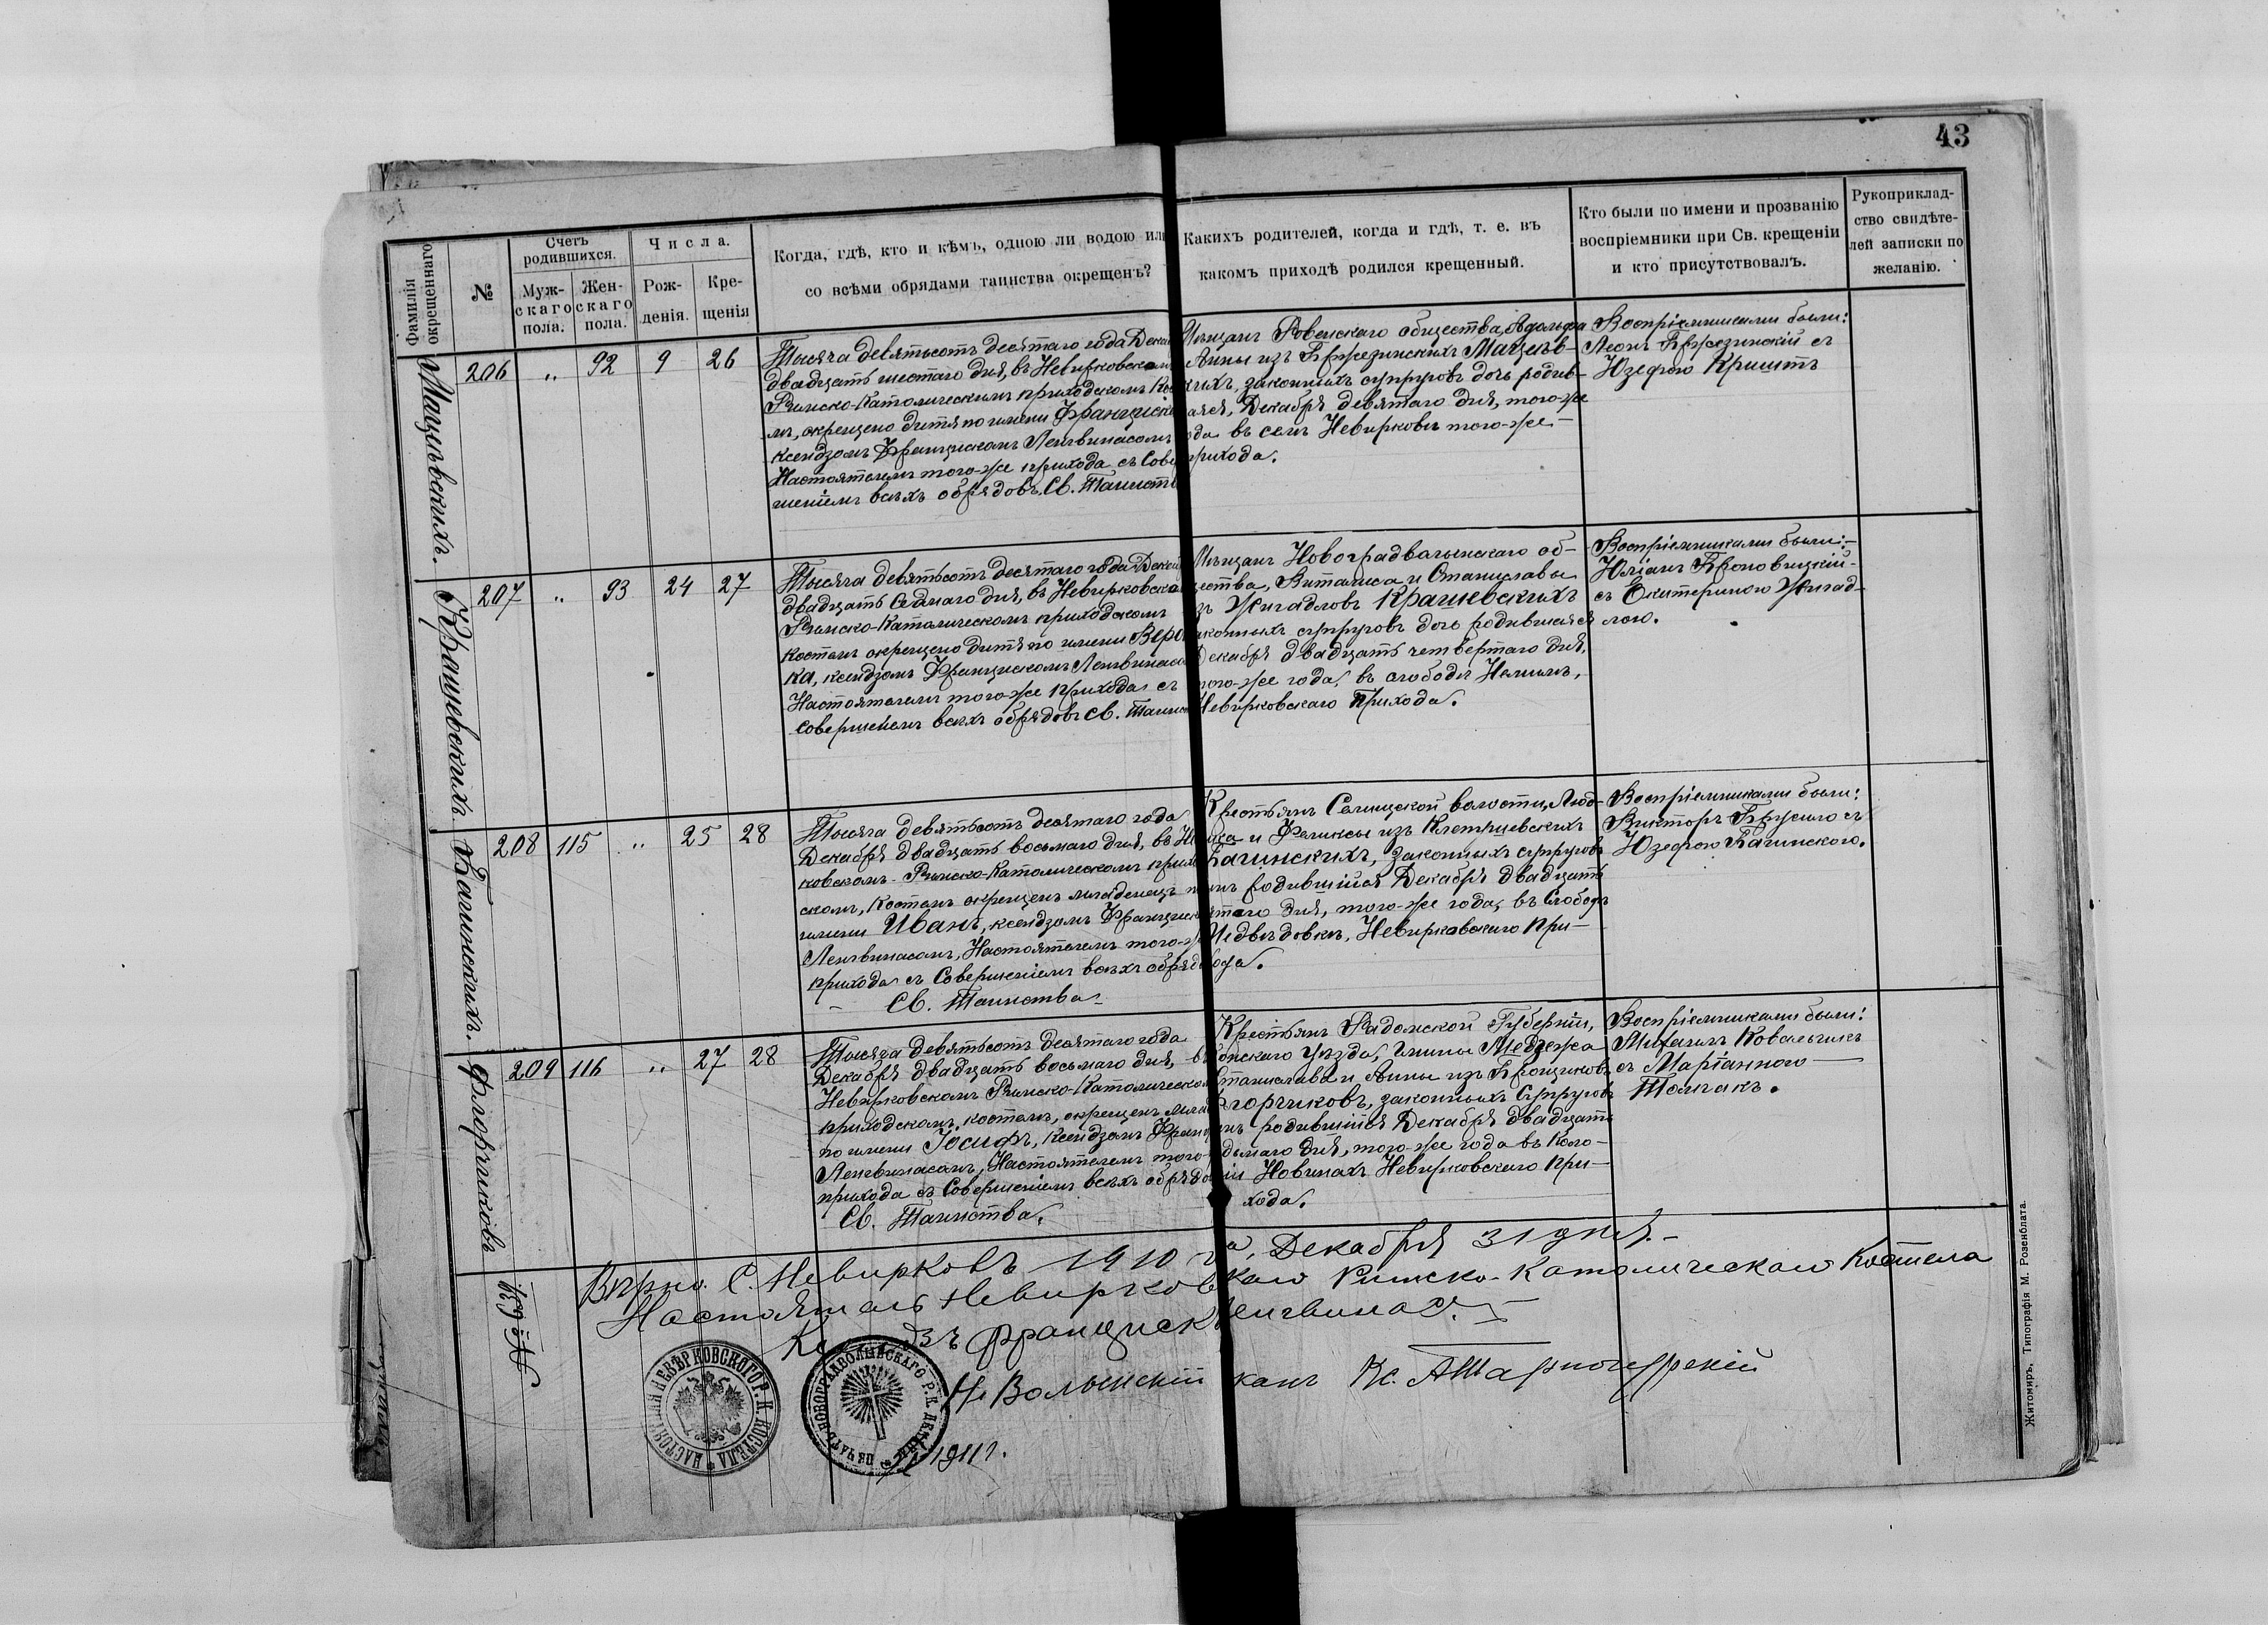 43
Фамилія окрещеннаго
№
Счетъ родившихся.
Муж-
скаго
пола.
Жен-
скаго
пола.
Числа.
Рож-
денія.
Кре-
щенія
Когда, гдѣ, кто и кѣмъ, одною ли водою или
со всѣми обрядами таинства окрещенъ?
Какихъ родителей, когда и гдѣ, т. е. въ
какомъ приходѣ родился крещенный.
Кто были по имени и прозванію
воспріемники при Св. крещеніи
и кто присутствовалъ.
Рукоприклад-
ство свидѣте-
лей записки по
желанію.
Мацѣевскихъ.
206 „ 92 9 26
Тысяча девятьсотъ десятаго года Декаб
двадцать шестаго дня, въ Невирковском
Римско-Католическомъ приходскомъ Кос
лѣ, окрещено дитя по имени Франциск
ксендзомъ Францискомъ Ленгвинасомъ
Настоятелемъ того-же прихода съ Совер
шеніемъ всѣхъ обрядовъ Св. Таинст
Мѣщанъ Ровенскаго общества, Адольфа
Анны изъ Бржезинскихъ Мацѣев-
кихъ, законныхъ супруговъ дочь родив-
аяся, Декабря девятаго дня, того-же
ода въ селѣ Невирковѣ того-же
прихода.
Воспріемниками были:
Леонъ Бржезинскій съ
Юзефою Кришть
Крашевскихъ
207 „ 93 24 27
Тысяча девятьсотъ десятаго года Декаб
двадцать седмаго дня, въ Невирковско
Римско-Католическомъ приходскомъ
костелѣ окрещено дитя по имени Веро
ка, ксендзомъ Францискомъ Ленгвинасо
Настоятелемъ того-же прихода съ
совершеніемъ всѣхъ обрядовъ Св. Таинс
Мѣщанъ Новоградволынскаго об-
щества, Виталиса и Станиславы
зъ Жигадловъ Крашевскихъ
аконныхъ супруговъ дочь родившаяся
Декабря двадцать четвертаго дня,
того-же года, въ слободѣ
Невирковскаго Прихода.
Воспріемниками были:
Юліанъ Броновицкій
съ Екатериною Жигад-
лою.
Багинскихъ.
208 115 „ 25 28
Тысяча девятьсотъ десятаго года
Декабря двадцать восьмаго дня, въ Не
ковскомъ Римско-Католическомъ прихо
скомъ, костелѣ окрещенъ младенецъ п
имени Иванъ, ксендзомъ Франциск
Ленгвинасомъ, Настоятелемъ того-ж
прихода съ Совершеніемъ всѣхъ обрядо
Св. Таинства
Крестьянъ Селищской волости, Люд-
ика и Феликсы изъ
Багинскихъ, законныхъ супруговъ
ынъ родившійся Декабря двадцать
ятаго дня, того-же года, въ Слободѣ
Медвѣдовкѣ, Невирковскаго При-
ода.
Воспріемниками были:
Викторъ Брусило съ
Юзефою Багинскою.
Флорчиковъ
209 116 „ 27 28
Тысяча девятьсотъ десятаго года
Декабря двадцать восьмаго дня, въ
Невирковскомъ Римско-Католическом
приходскомъ, костелѣ, окрещенъ млад
по имени Іосифъ, ксендзомъ Франц
Ленгвинасомъ, Настоятелемъ того-
прихода съ Совершеніемъ всѣхъ обрядо
Св. Таинства.
Крестьянъ Радомской Губерніи,
онскаго Уѣзда, Гмины
таниславa и Анны изъ
лорчиковъ, законныхъ Супруговъ
ынъ родившійся Декабря двадцать
дьмаго дня, того-же года въ Коло-
ніи Новинахъ Невирковскаго При-
хода.
Воспріемниками были:
Михаилъ Ковальчикъ
съ Маріанною
Толчакъ.
Вѣрно. С. Невирковъ 1910 года, Декабря 31 дня.
Настоятель Невирковскаго Римско-Католическаго Костела
Ксендзъ Францискъ Ленгвинасъ.
Н. Волынскій Кс.
1911 г.
ПЕЧАТЬ НОВОГРАДВОЛЫНСКАГО Р. К.
НАСТОЯТ. НЕВѢРКОВСКОГО Р. К. КОСТЕЛА
Житомиръ. Типографія М. Розенблата.